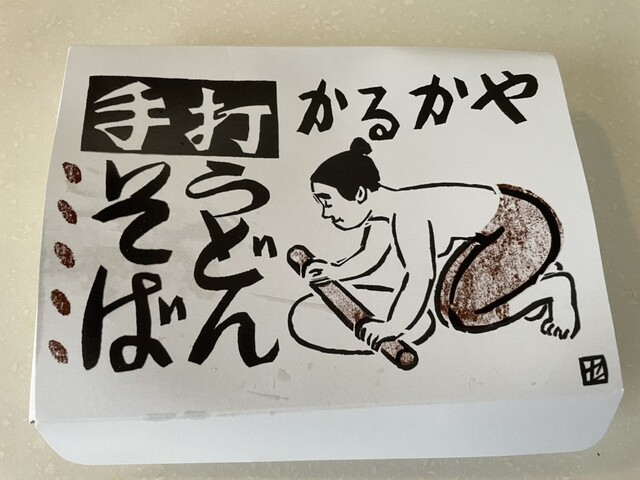 手打
かるかや
うどん
そば